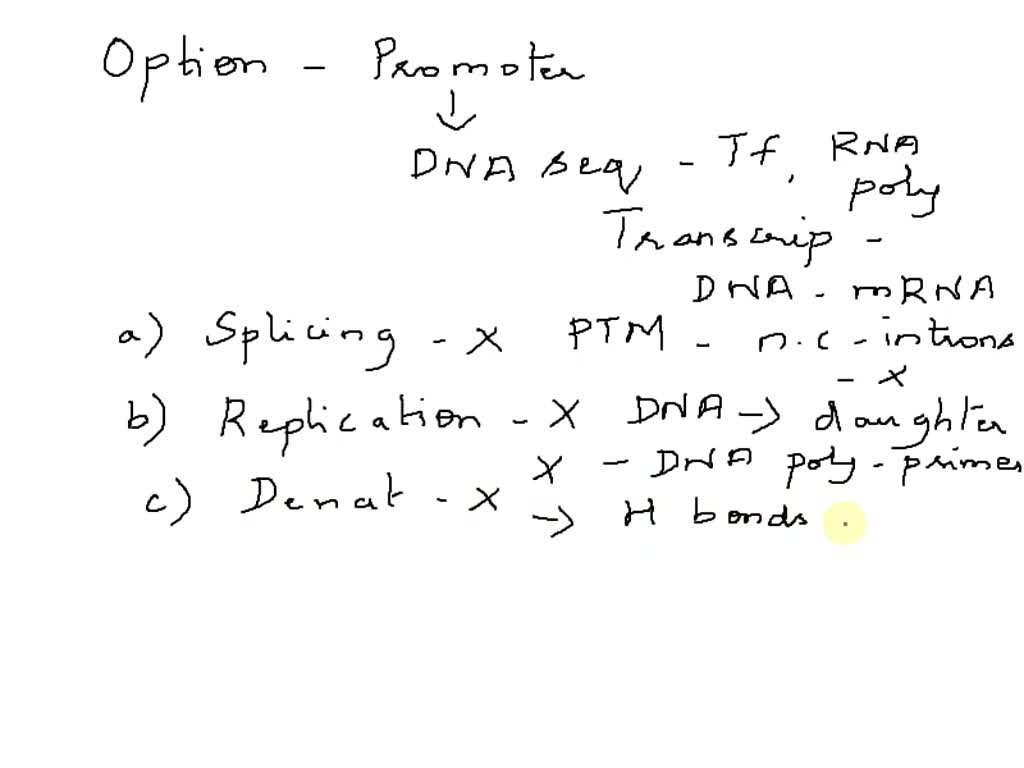 Option - Promoter
↓
DNA seq - Tf, RNA poly
Transcrip -
DNA - mRNA
a) Splicing - X PTM - n.c - introns
- x
b) Replication - X DNA → daughter
X - DNA poly - primer
c) Denat - X → H bonds